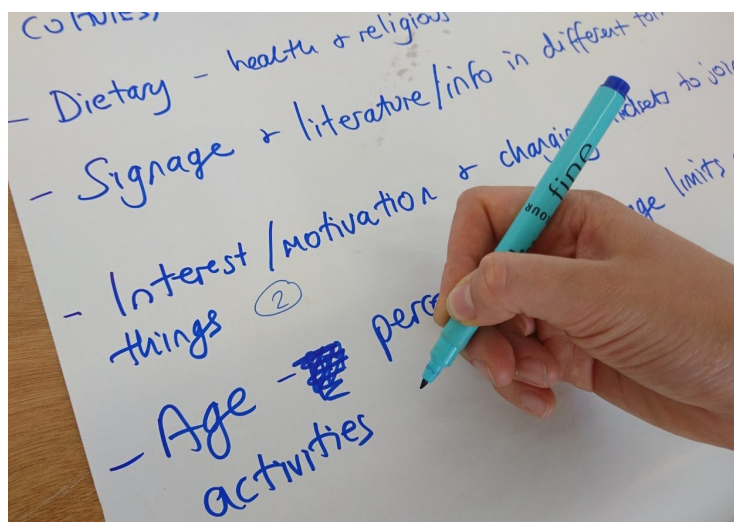 - Dietary - health & religious
- Signage & literature/info in different
- Interest/motivation & changing mindsets to join
things ②
- Age - age limits
activities
OUR fine